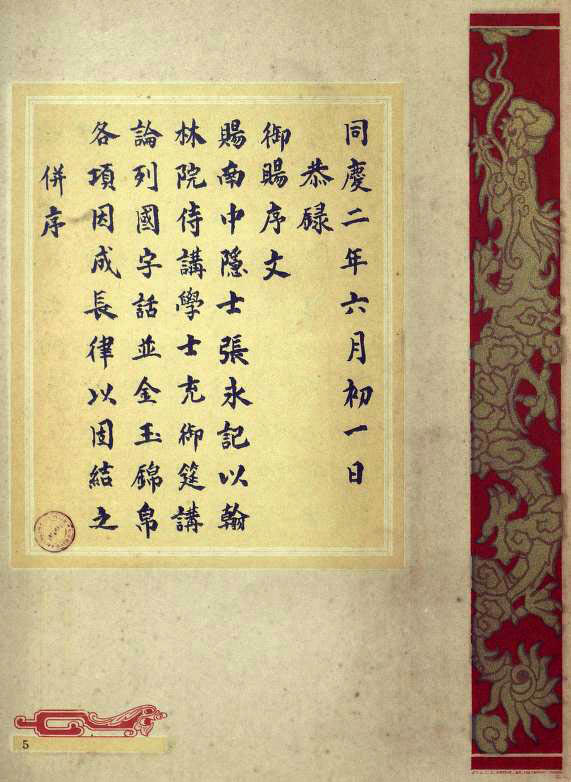 同慶二年六月初一日
恭録
御賜序文
賜南中隱士張永記以翰
林院侍講學士充御筵講
論列國字話並金玉錦帛
各項因成長律以固結之
併序
5